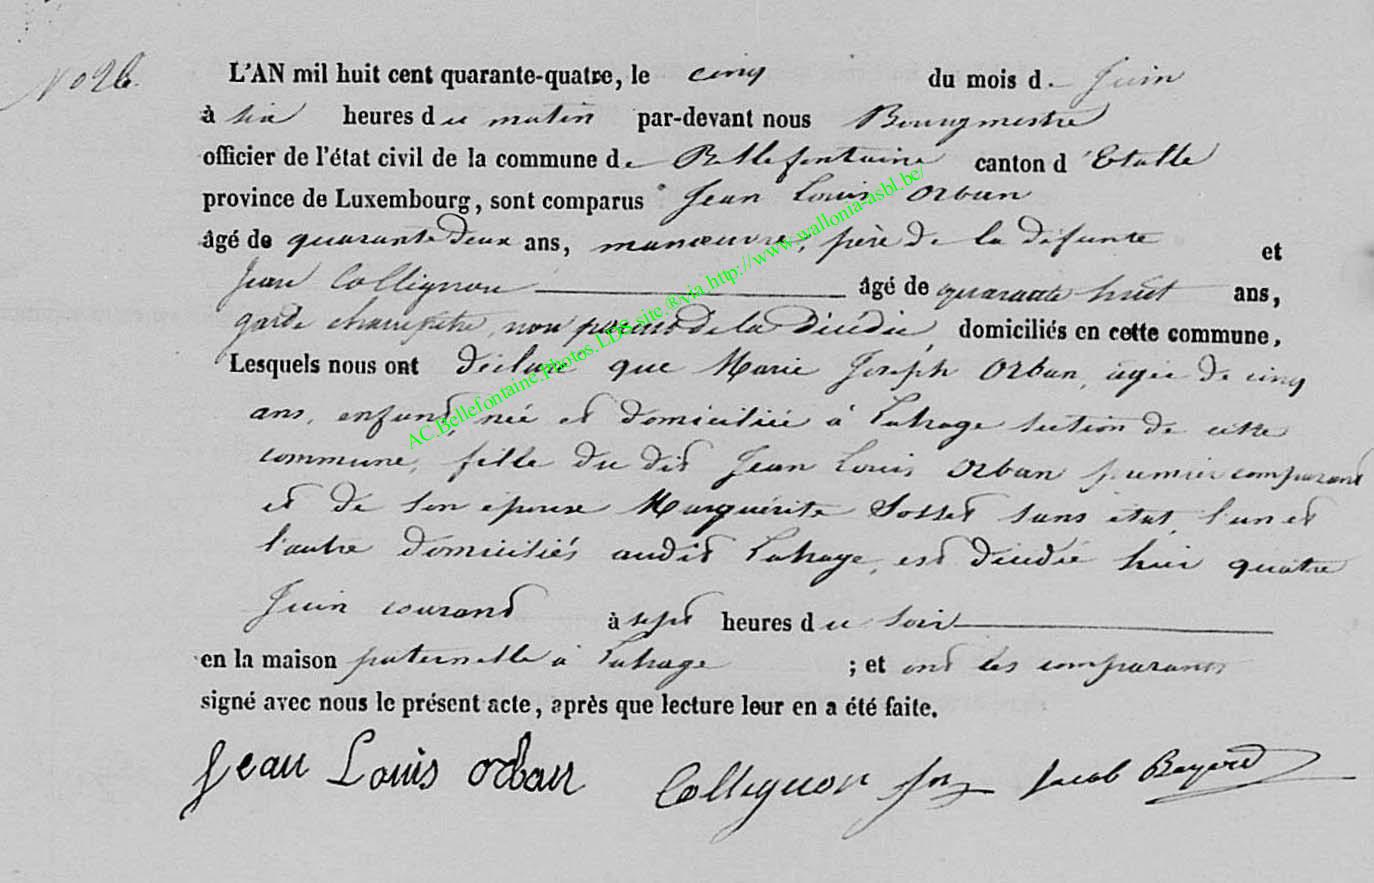 N° 26.
L'AN mil huit cent quarante-quatre, le cinq du mois de Juin
à six heures du matin par-devant nous Bourgmestre
officier de l'état civil de la commune de Bellefontaine canton d'Etalle
province de Luxembourg, sont comparus Jean Louis Orban
âgé de quarante deux ans, manœuvre, père de la défunte et
Jean Collignon âgé de quarante huit ans,
garde champêtre, non parent de la décédée, domiciliés en cette commune,
Lesquels nous ont déclaré que Marie Joseph Orban, agée de cinq
ans, enfant, née et domiciliée à Lahage section de cette
commune, fille du dit Jean Louis Orban premier comparant
et de son épouse Marguérite Sosset sans état, l'un et
l'autre domiciliés audit Lahage, est décédée hier quatre
Juin courant à sept heures du soir
en la maison paternelle à Lahage ; et ont les comparants
signé avec nous le présent acte, après que lecture leur en a été faite.
Jean Louis orban Collignon Jn Jacob Bayard
AC.Bellefontaine.Photos.LDS.site.®via http://www.wallonia-asbl.be/